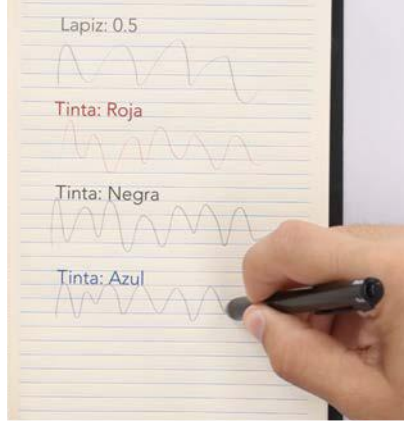 Lapiz: 0.5
Tinta: Roja
Tinta: Negra
Tinta: Azul